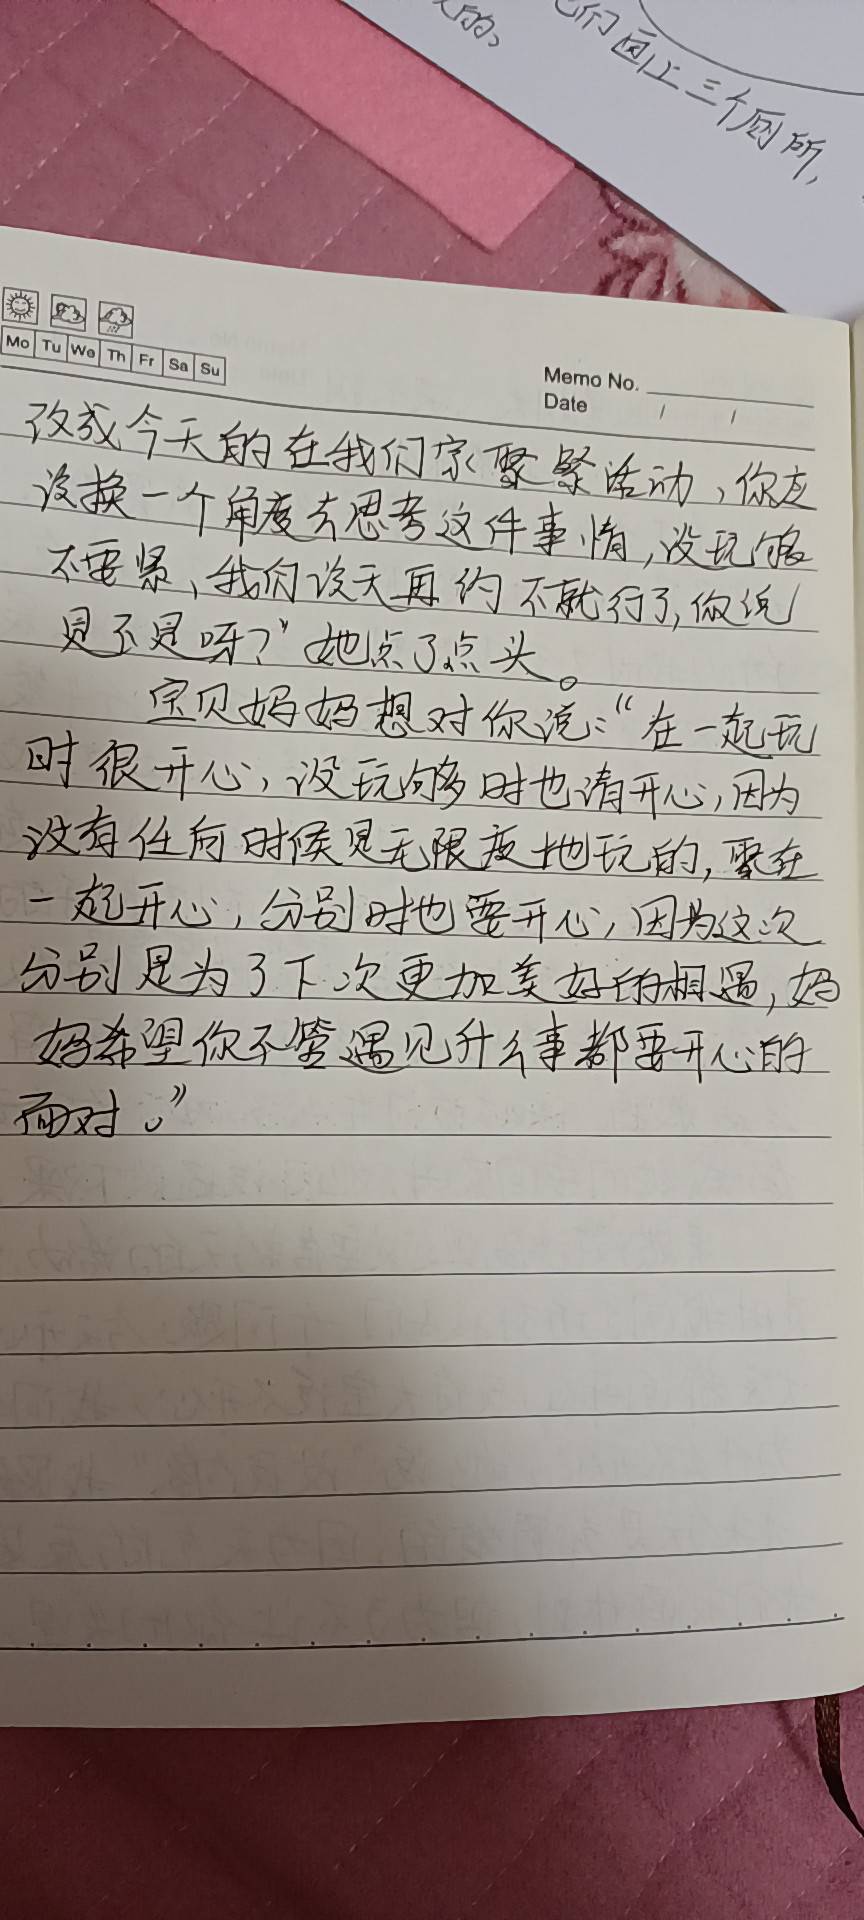 们画上三个圆所,
的、
Mo Tu We Th Fr Sa Su
Memo No.
Date / /
改成今天的在我们家聚紧活动,你应
该换一个角度去思考这件事情,没玩够
不要紧,我们改天再约不就行了,你说
是不是呀?”她点了点头。
宝贝妈妈想对你说:“在一起玩
时很开心,没玩够时也请开心,因为
没有任何时候是无限度地玩的,聚在
一起开心,分别时也要开心,因为这次
分别是为了下次更加美好的相遇,妈
妈希望你不管遇见什么事都要开心的
面对。”